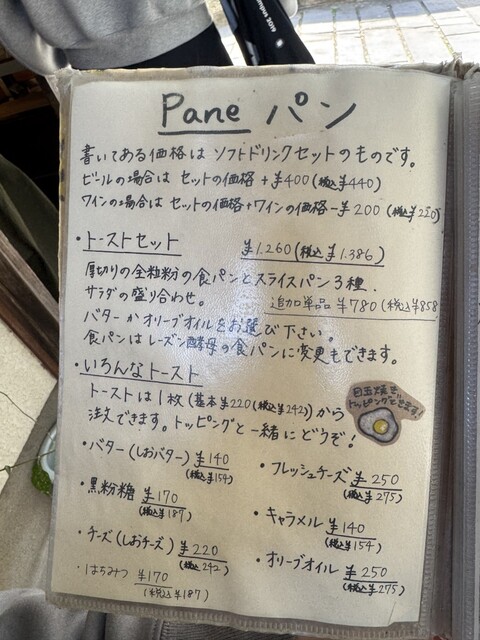 Pane パン
書いてある価格は ソフトドリンクセットのものです。
ビールの場合は セットの価格+¥400(税込¥440)
ワインの場合は セットの価格+ワインの価格-¥200 (税込¥220)
・トーストセット ¥1.260(税込¥1.386)
厚切りの全粒粉の食パンとスライスパン3種.
サラダの盛り合わせ。 追加単品 ¥780(税込¥858
バターかオリーブオイルをお選び下さい。
食パンはレーズン酵母の食パンに変更もできます。
・いろんなトースト
トーストは1枚(基本¥220(税込¥242)から
注文できます。トッピングと一緒にどうぞ!
目玉焼きも
トッピングできます!
・バター(しおバター) ¥140
(税込¥154)
・黒粉糖 ¥170
(税込¥187)
・チーズ(しおチーズ) ¥220
(税込242)
・はちみつ ¥170
(税込¥187)
・フレッシュチーズ ¥250
(税込¥275)
・キャラメル ¥140
(税込¥154)
・オリーブオイル ¥250
(税込¥275)